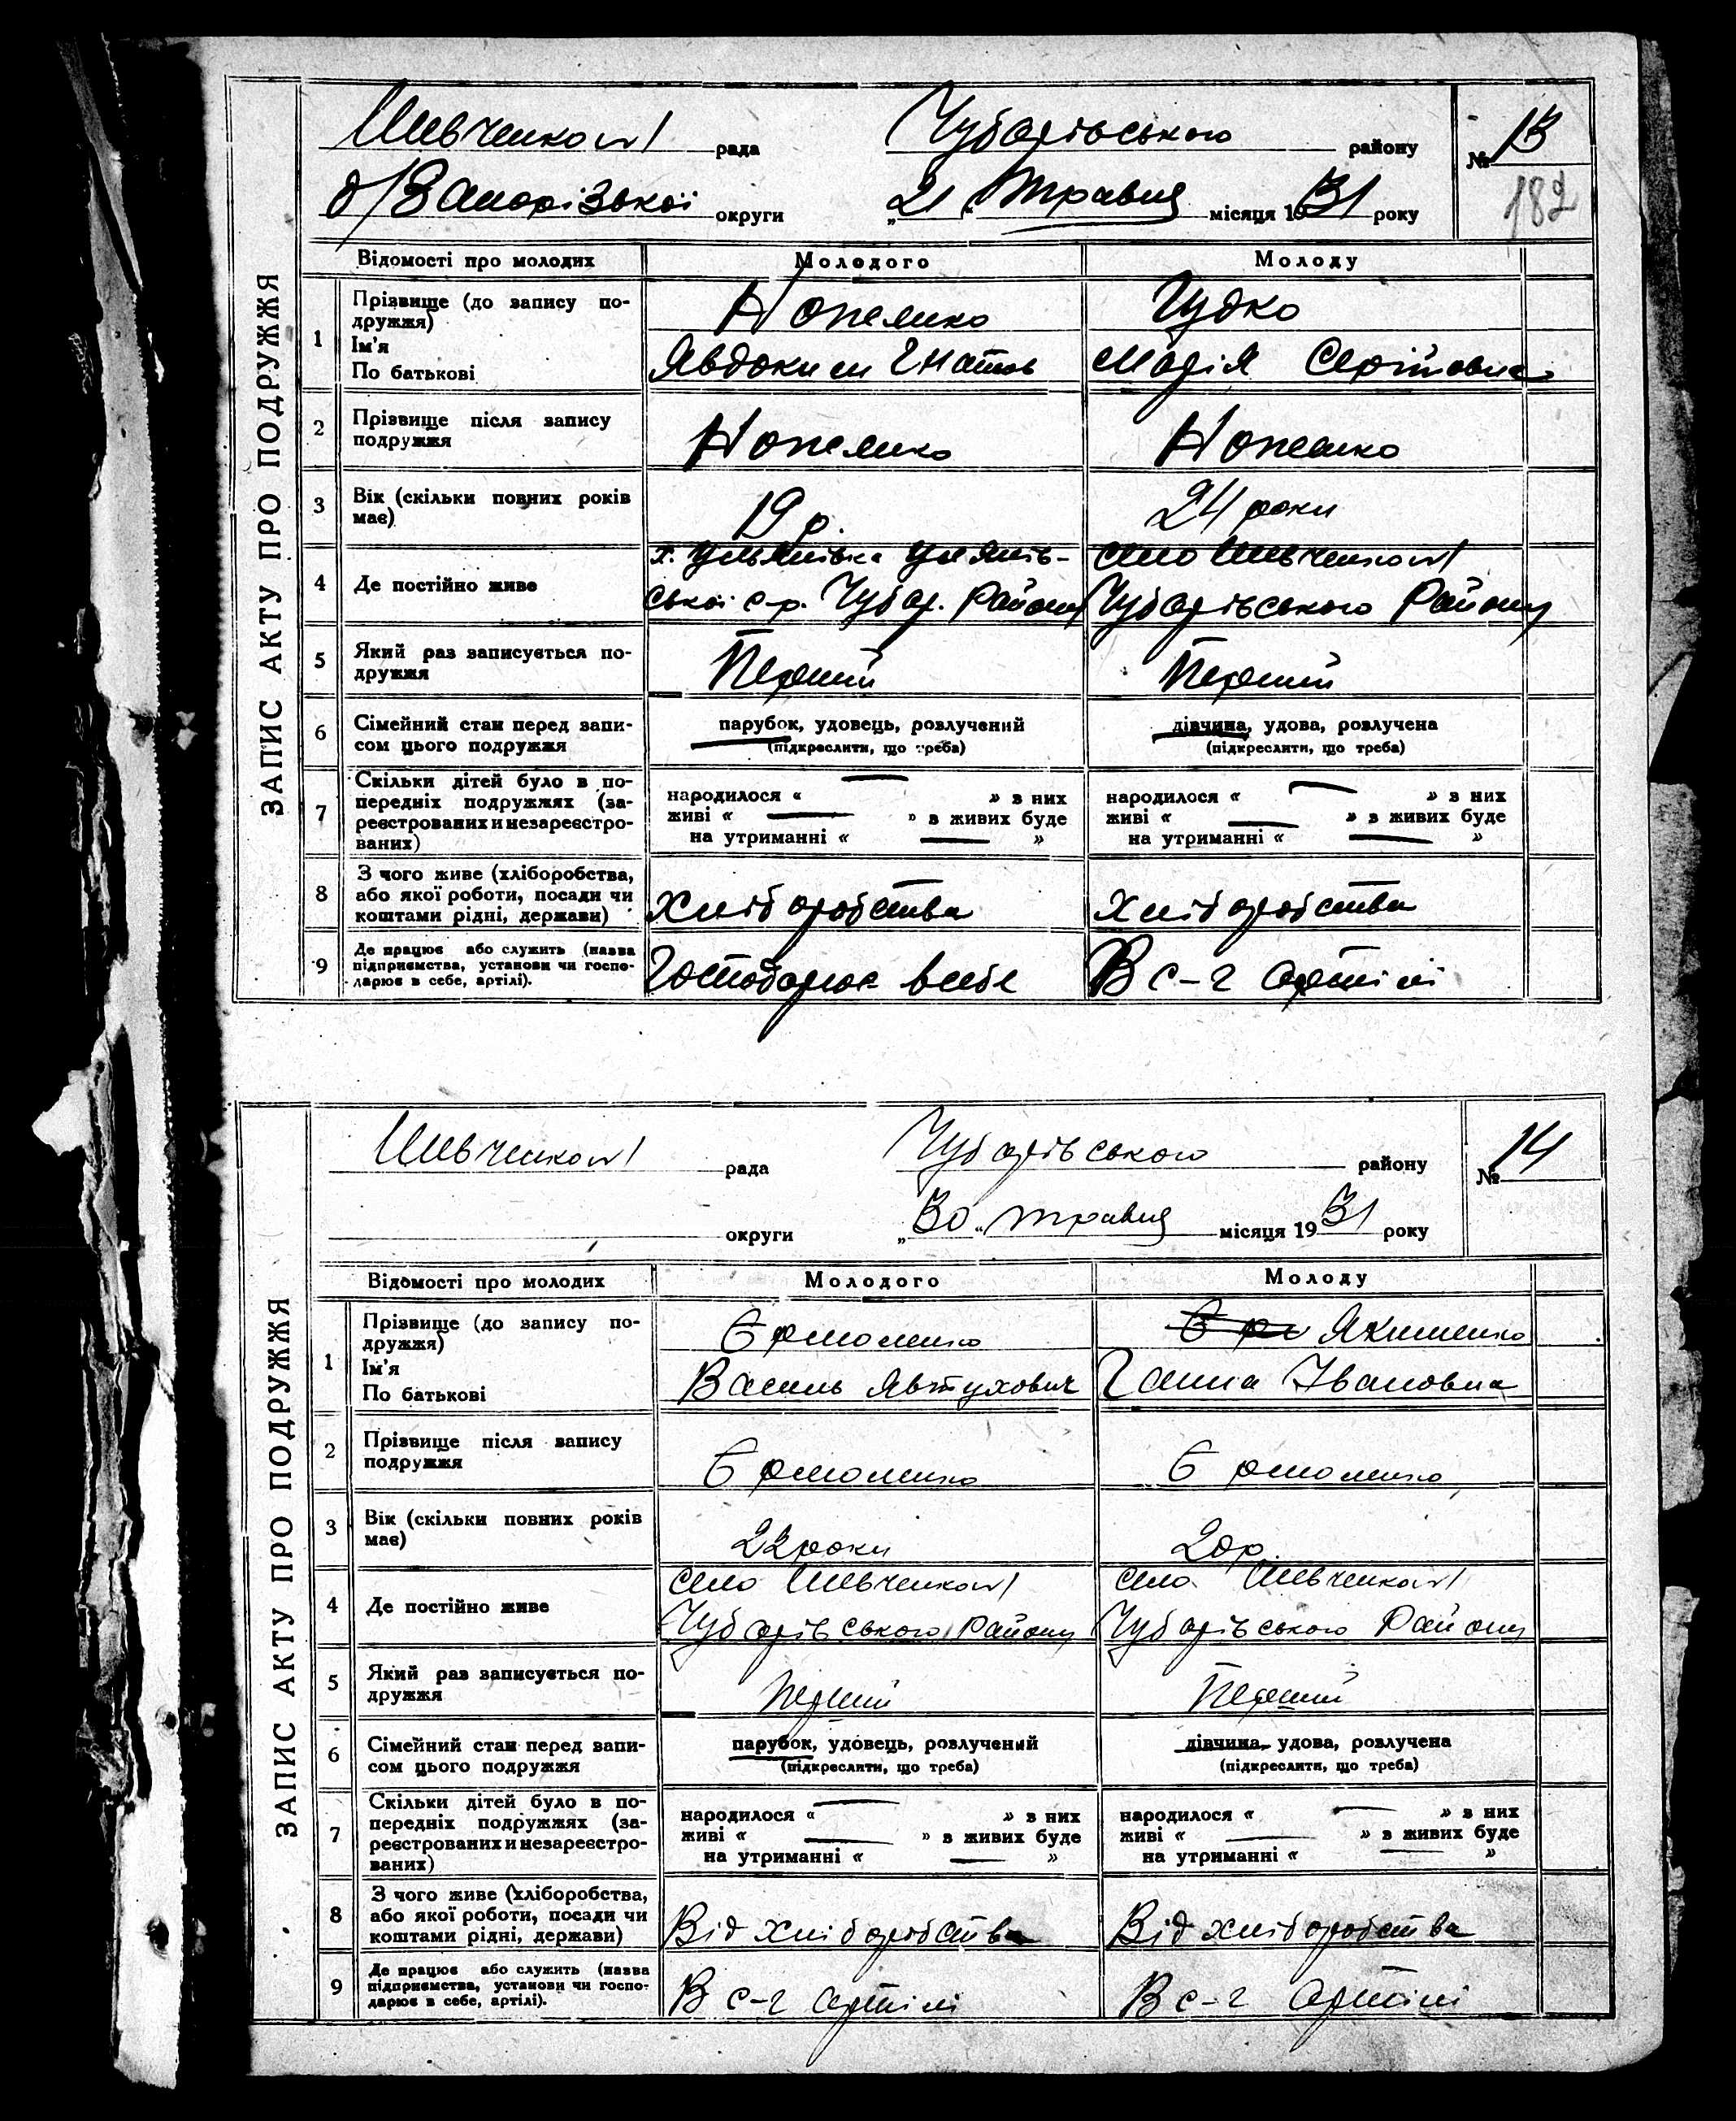 ЗАПИС АКТУ ПРО ПОДРУЖЖЯ
Шевченко №1 рада Чубарівського району № 13
б/Запорізької округи „21“ травня місяця 1931 року 182
Відомості про молодих Молодого Молоду
1 Прізвище (до запису по-
дружжя) Гудко
Ім'я
По батькові Явдоким Гнатов Марія Сергіївна
2 Прізвище після запису
подружжя
3 Вік (скільки повних років
має) 19 р. 24 роки
4 Де постійно живе х. Ульянівка Ульянів- село Шевченко №1
ської с-р. Чубар. Району Чубарівського Району
5 Який раз записується по-
дружжя Перший Перший
6 Сімейний стан перед запи-
сом цього подружжя парубок, удовець, розлучений дівчина, удова, розлучена
(підкреслити, що треба) (підкреслити, що треба)
7 Скільки дітей було в по-
передніх подружжях (за-
реєстрованих и незареєстро-
ваних) народилося « — » з них народилося « — » з них
живі « — » з живих буде живі « — » з живих буде
на утриманні « — » на утриманні « — »
8 З чого живе (хліборобства,
або якої роботи, посади чи
коштами рідні, держави) хліборобства хліборобства
9 Де працює або служить (назва
підприємства, установи чи госпо-
дарює в себе, артілі). Господарює всебе В с-г артілі
ЗАПИС АКТУ ПРО ПОДРУЖЖЯ
Шевченко №1 рада Чубарівського району № 14
округи „30“ травня місяця 1931 року
Відомості про молодих Молодого Молоду
1 Прізвище (до запису по-
дружжя) Єрмоленко Якименко
Ім'я
По батькові Василь Явтухович Ганна Івановна
2 Прізвище після запису
подружжя Єрмоленко Єрмоленко
3 Вік (скільки повних років
має) 22 роки 20 р.
4 Де постійно живе село Шевченко №1 село Шевченко №1
Чубарівського Району Чубарівського Району
5 Який раз записується по-
дружжя перший Перший
6 Сімейний стан перед запи-
сом цього подружжя парубок, удовець, розлучений дівчина, удова, розлучена
(підкреслити, що треба) (підкреслити, що треба)
7 Скільки дітей було в по-
передніх подружжях (за-
реєстрованих и незареєстро-
ваних) народилося « — » з них народилося « — » з них
живі « — » з живих буде живі « — » з живих буде
на утриманні « — » на утриманні « — »
8 З чого живе (хліборобства,
або якої роботи, посади чи
коштами рідні, держави) Від хліборобства Від хліборобства
9 Де працює або служить (назва
підприємства, установи чи госпо-
дарює в себе, артілі). В с-г артілі В с-г артілі